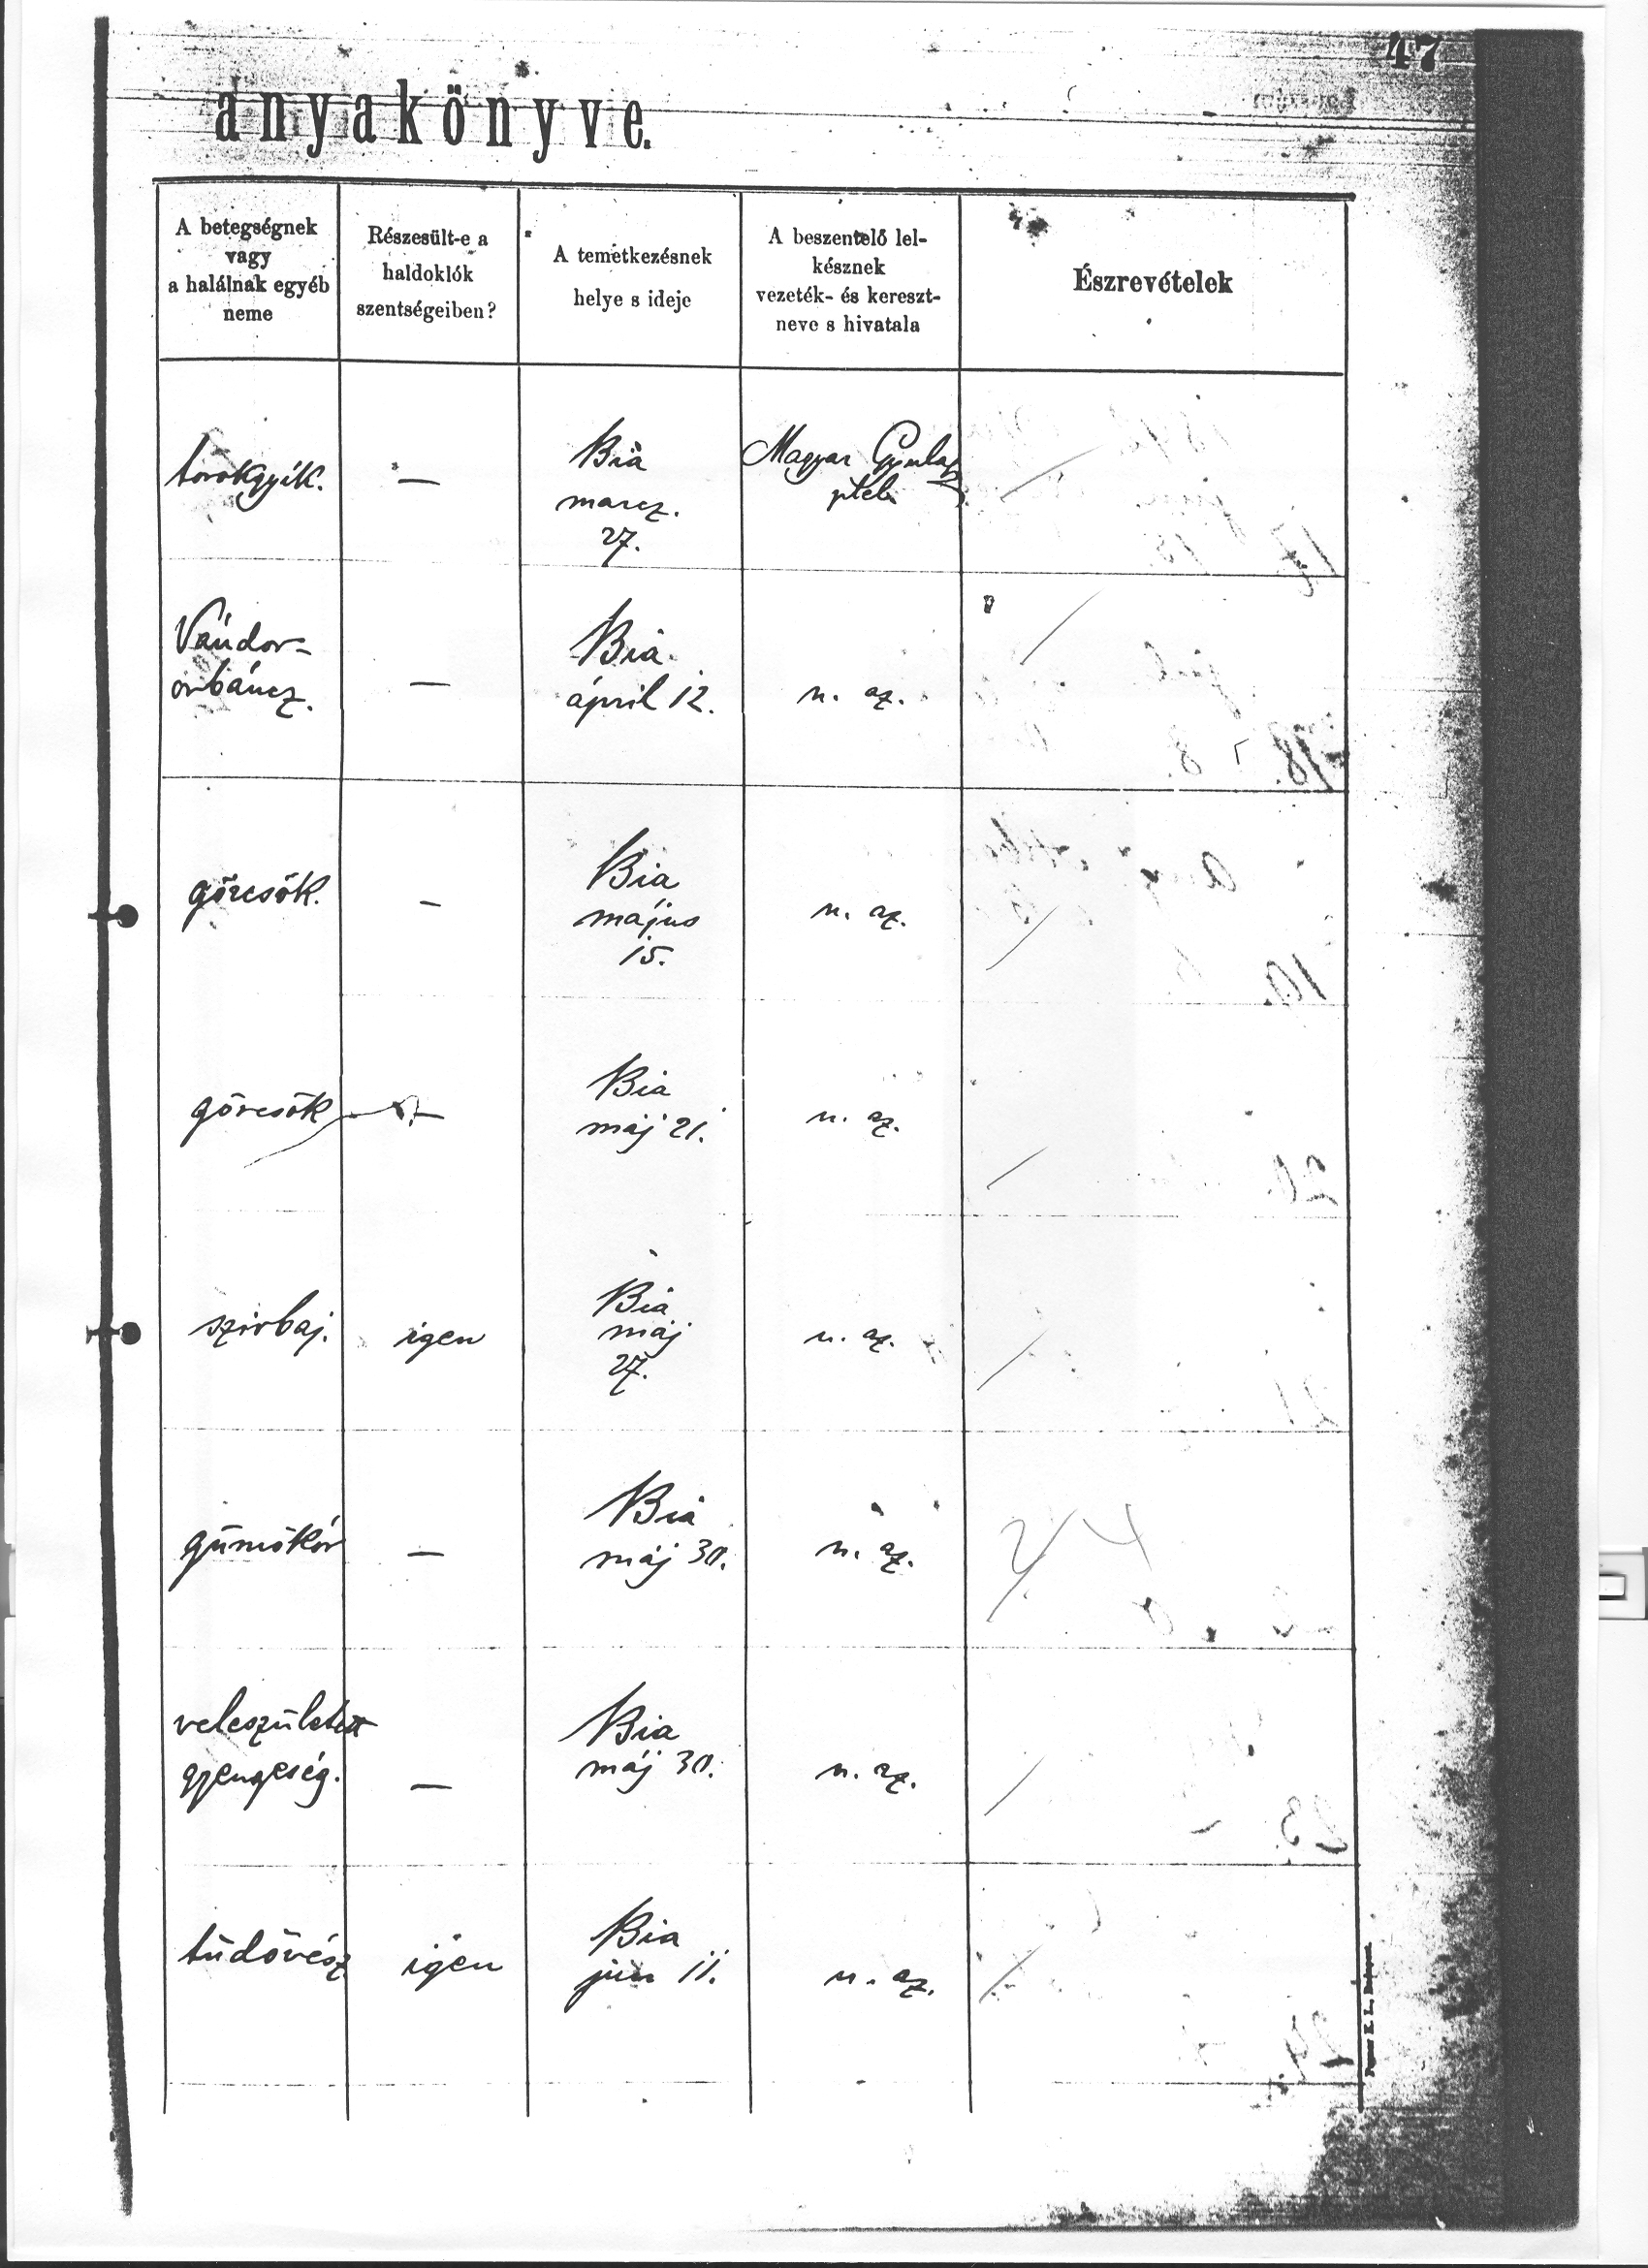 47
anyakönyve.
A betegségnek
vagy
a halálnak egyéb
neme
Részesült-e a
haldoklók
szentségeiben?
A temetkezésnek
helye s ideje
A beszentelő lel-
késznek
vezeték- és kereszt-
neve s hivatala
Észrevételek
torokgyík.
—
Bia
marcz.
27.
Magyar Gyula
pleb
Vándor-
orbáncz.
—
Bia
ápril 12.
u. az.
görcsök.
—
Bia
május
15.
u. az.
görcsök
—
Bia
máj 21.
u. az.
szivbaj.
igen
Bia
máj
27.
u. az.
gümőkór
—
Bia
máj 30.
u. az.
veleszületett
gyengeség.
—
Bia
máj 30.
u. az.
tüdővész
igen
Bia
jun 11.
u. az.